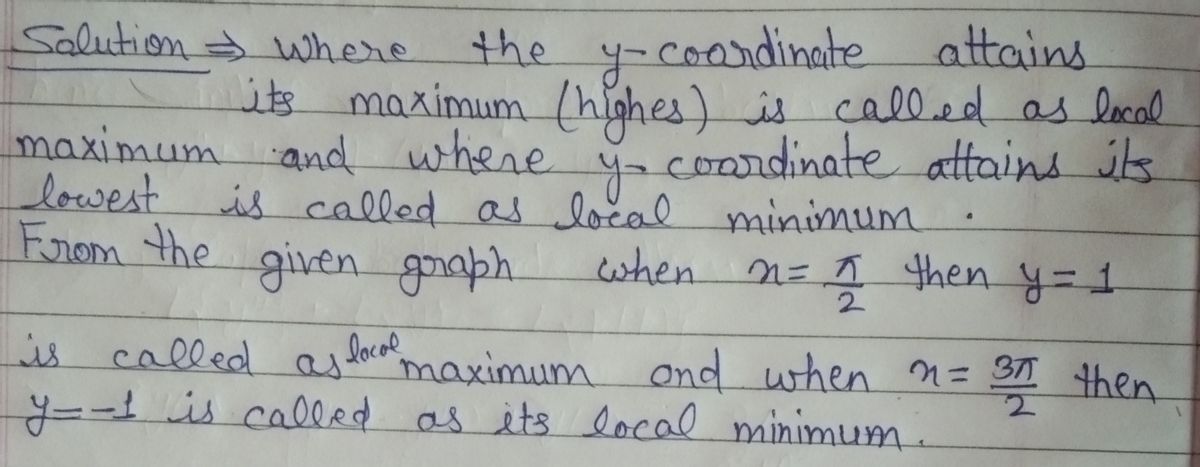 Solution ⇒ where the y-coordinate attains
its maximum (highes) is called as local
maximum and where y-coordinate attains its
lowest is called as local minimum.
From the given graph when x= π/2 then y=1
is called as local maximum and when x= 3π/2 then
y=-1 is called as its local minimum.